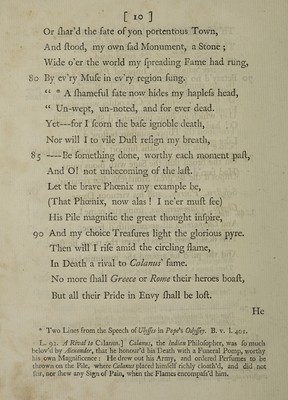 [ 10 ]
Or ſhar'd the fate of yon portentous Town,
And ſtood, my own ſad Monument, a Stone ;
Wide o'er the world my ſpreading Fame had rung,
80 By ev'ry Muſe in ev'ry region ſung.
“ * A ſhameful fate now hides my hapleſs head,
“ Un-wept, un-noted, and for ever dead.
Yet---for I ſcorn the baſe ignoble death,
Nor will I to vile Duſt reſign my breath,
85 ----Be ſomething done, worthy each moment paſt,
And O! not unbecoming of the laſt.
Let the brave Phœnix my example be,
(That Phœnix, now alas ! I ne'er muſt ſee)
His Pile magnific the great thought inſpire,
90 And my choice Treaſures light the glorious pyre.
Then will I riſe amid the circling flame,
In Death a rival to Calanus' fame.
No more ſhall Greece or Rome their heroes boaſt,
But all their Pride in Envy ſhall be loſt.
He
* Two Lines from the Speech of Ulyſſes in Pope's Odyſſey. B. v. l. 401.
L. 92. A Rival to Calanus.] Calanus, the Indian Philoſopher, was ſo much
belov'd by Alexander, that he honour'd his Death with a Funeral Pomp, worthy
his own Magnificence : He drew out his Army, and ordered Perfumes to be
thrown on the Pile, where Calanus placed himſelf richly cloath'd, and did not
ſtir, nor ſhew any Sign of Pain, when the Flames encompaſs'd him.